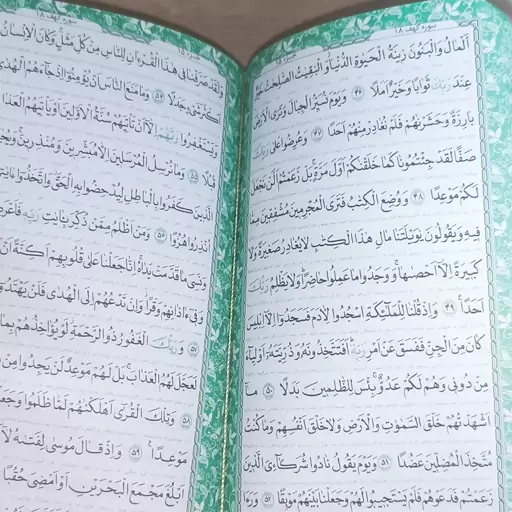 سورة كهف ١٨
اَلْمَالُ وَالْبَنُونَ زِينَةُ الْحَيٰوةِ الدُّنْيَا وَالْبٰقِيٰتُ الصّٰلِحٰتُ خَيْرٌ
عِنْدَ رَبِّكَ ثَوَابًا وَخَيْرٌ اَمَلًا ٤٦ وَيَوْمَ نُسَيِّرُ الْجِبَالَ وَتَرَى الْاَرْضَ
بَارِزَةً وَحَشَرْنٰهُمْ فَلَمْ نُغَادِرْ مِنْهُمْ اَحَدًا ٤٧ وَعُرِضُوا عَلٰى رَبِّكَ
صَفًّا لَقَدْ جِئْتُمُونَا كَمَا خَلَقْنٰكُمْ اَوَّلَ مَرَّةٍ بَلْ زَعَمْتُمْ اَلَّنْ نَجْعَلَ
لَكُمْ مَوْعِدًا ٤٨ وَوُضِعَ الْكِتٰبُ فَتَرَى الْمُجْرِمِينَ مُشْفِقِينَ مِمَّا
فِيهِ وَيَقُولُونَ يٰوَيْلَتَنَا مَالِ هٰذَا الْكِتٰبِ لَا يُغَادِرُ صَغِيرَةً وَلَا
كَبِيرَةً اِلَّا اَحْصٰىهَا وَوَجَدُوا مَا عَمِلُوا حَاضِرًا وَلَا يَظْلِمُ رَبُّكَ
اَحَدًا ٤٩ وَاِذْ قُلْنَا لِلْمَلٰٓئِكَةِ اسْجُدُوا لِاٰدَمَ فَسَجَدُوا اِلَّا اِبْلِيسَ
كَانَ مِنَ الْجِنِّ فَفَسَقَ عَنْ اَمْرِ رَبِّهِ اَفَتَتَّخِذُونَهُ وَذُرِّيَّتَهُ اَوْلِيَاءَ
مِنْ دُونِي وَهُمْ لَكُمْ عَدُوٌّ بِئْسَ لِلظّٰلِمِينَ بَدَلًا ٥٠ مَا
اَشْهَدْتُهُمْ خَلْقَ السَّمٰوٰتِ وَالْاَرْضِ وَلَا خَلْقَ اَنْفُسِهِمْ وَمَا كُنْتُ
مُتَّخِذَ الْمُضِلِّينَ عَضُدًا ٥١ وَيَوْمَ يَقُولُ نَادُوا شُرَكَاءِيَ الَّذِينَ
زَعَمْتُمْ فَدَعَوْهُمْ فَلَمْ يَسْتَجِيبُوا لَهُمْ وَجَعَلْنَا بَيْنَهُمْ مَوْبِقًا ٥٢
سورة كهف ١٨
وَلَقَدْ صَرَّفْنَا فِي هٰذَا الْقُرْءَانِ لِلنَّاسِ مِنْ كُلِّ مَثَلٍ وَكَانَ الْاِنْسَانُ
اَكْثَرَ شَيْءٍ جَدَلًا ٥٤ وَمَا مَنَعَ النَّاسَ اَنْ يُؤْمِنُوا اِذْ جَاءَهُمُ الْهُدٰى
يَسْتَغْفِرُوا رَبَّهُمْ اِلَّا اَنْ تَأْتِيَهُمْ سُنَّةُ الْاَوَّلِينَ اَوْ يَأْتِيَهُمُ
قُبُلًا ٥٥ وَمَا نُرْسِلُ الْمُرْسَلِينَ اِلَّا مُبَشِّرِينَ وَمُنْذِرِينَ
الَّذِينَ كَفَرُوا بِالْبَاطِلِ لِيُدْحِضُوا بِهِ الْحَقَّ وَاتَّخَذُوا
اُنْذِرُوا هُزُوًا ٥٦ وَمَنْ اَظْلَمُ مِمَّنْ ذُكِّرَ بِاٰيٰتِ رَبِّهِ
وَنَسِيَ مَا قَدَّمَتْ يَدَاهُ اِنَّا جَعَلْنَا عَلٰى قُلُوبِهِمْ اَكِنَّةً اَنْ
وَفِي اٰذَانِهِمْ وَقْرًا وَاِنْ تَدْعُهُمْ اِلَى الْهُدٰى فَلَنْ
٥٧ وَرَبُّكَ الْغَفُورُ ذُو الرَّحْمَةِ لَوْ يُؤَاخِذُهُمْ بِمَا
لَعَجَّلَ لَهُمُ الْعَذَابَ بَلْ لَهُمْ مَوْعِدٌ لَنْ يَجِدُوا مِنْ
٥٨ وَتِلْكَ الْقُرٰى اَهْلَكْنٰهُمْ لَمَّا ظَلَمُوا
مَوْعِدًا ٥٩ وَاِذْ قَالَ مُوسٰى لِفَتٰىهُ لَا
اَبْلُغَ مَجْمَعَ الْبَحْرَيْنِ اَوْ اَمْضِيَ حُقُبًا